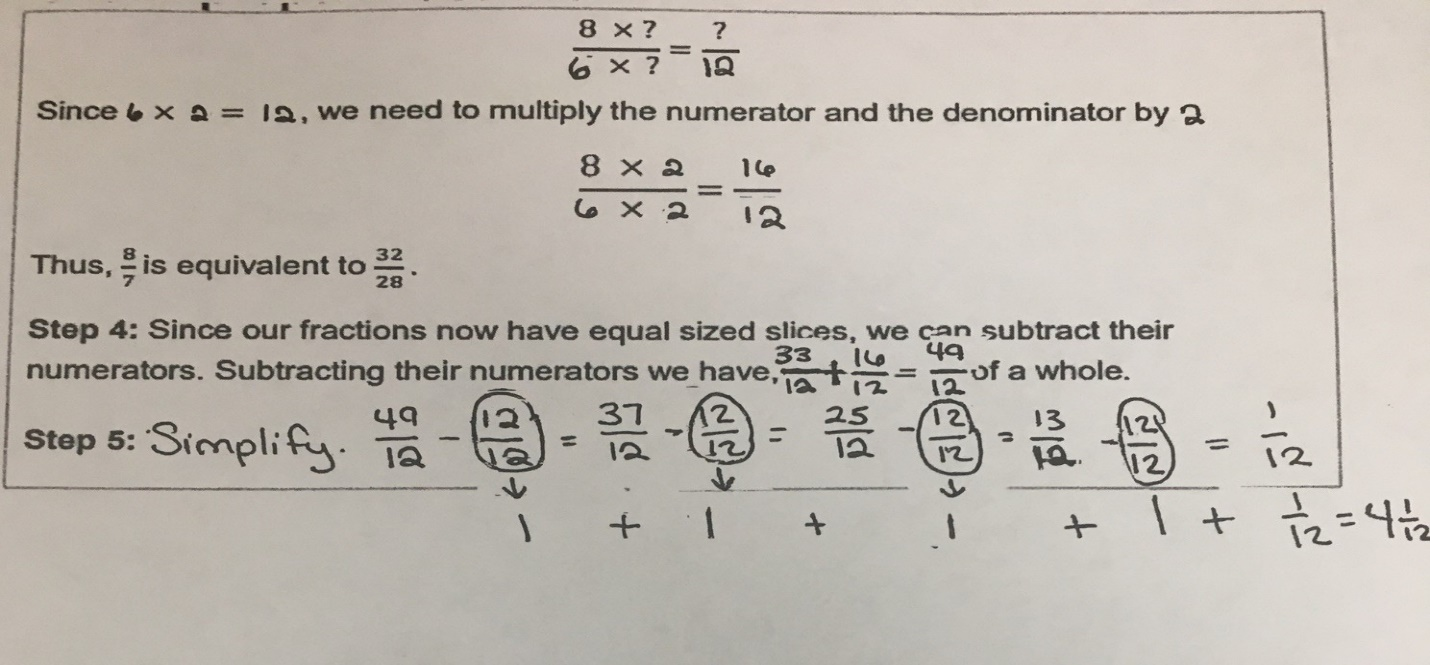 8 × ? / 6 × ? = ? / 12
Since 6 × 2 = 12, we need to multiply the numerator and the denominator by 2
8 × 2 / 6 × 2 = 16 / 12
Thus, 8/7 is equivalent to 32/28.
Step 4: Since our fractions now have equal sized slices, we can subtract their
numerators. Subtracting their numerators we have, 33/12 + 16/12 = 49/12 of a whole.
Step 5: Simplify. 49/12 - 12/12 = 37/12 - 12/12 = 25/12 - 12/12 = 13/12 - 12/12 = 1/12
↓ ↓ ↓
1 + 1 + 1 + 1 + 1/12 = 4 1/12